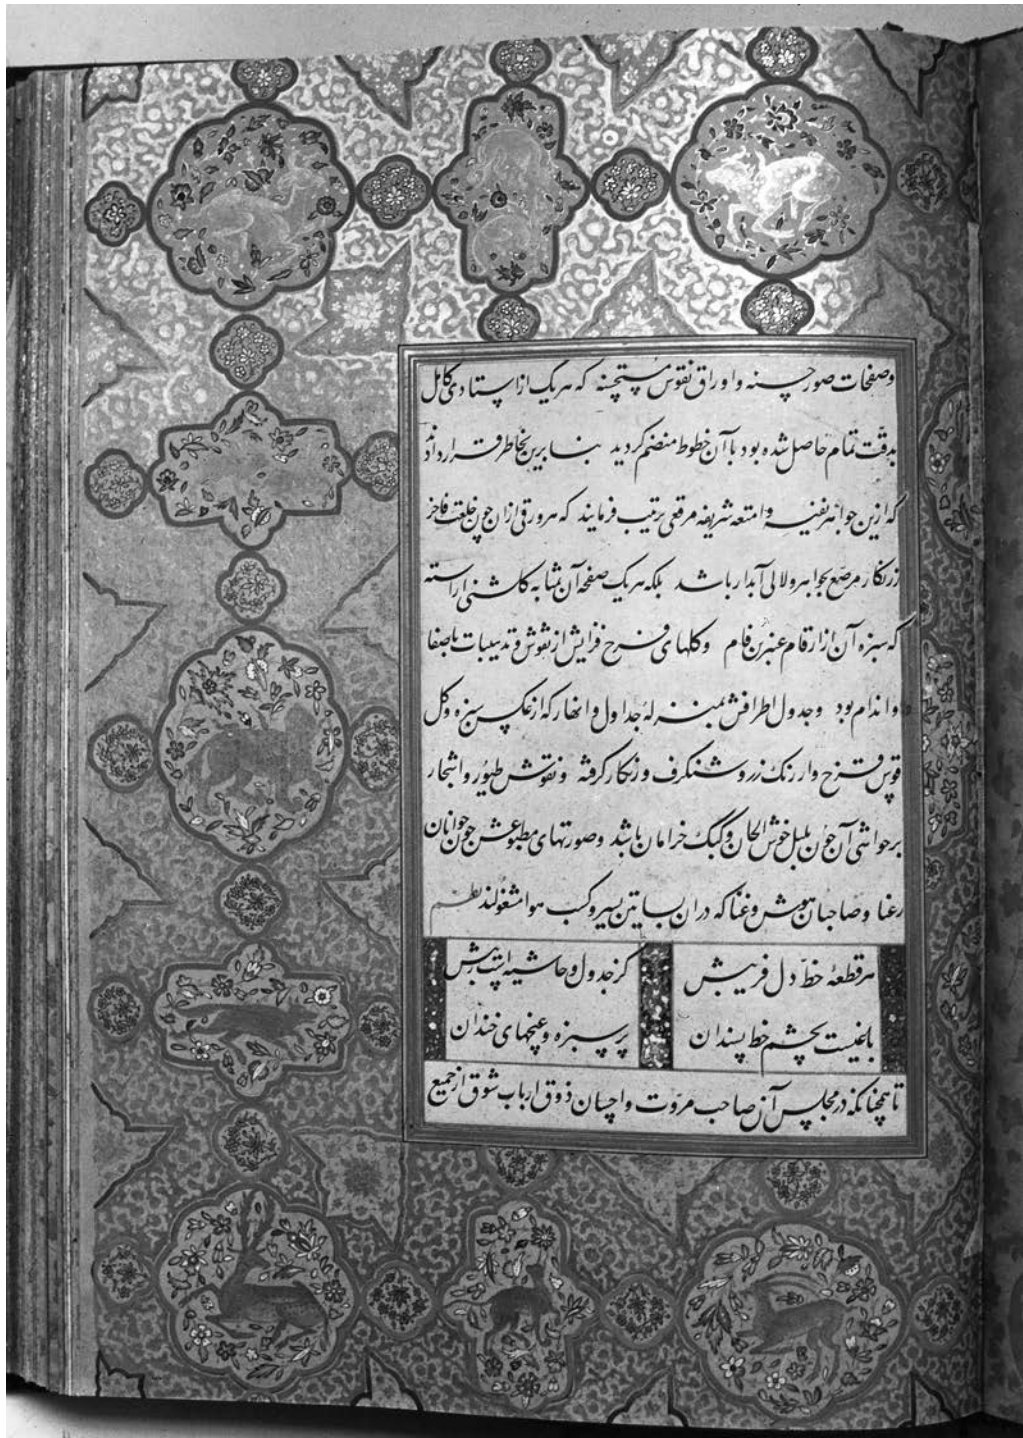 وصفحات صور حسنه و اوراق نقوش مستحسنه که هر یک از استادی کامل
بدقّت تمام حاصل شده بود با آن خطوط منضم کردید بنا برین بخاطر قرار دادند
که ازین جواهر نفیسه و امتعه شریفه مرقعی ترتیب فرمایند که هر ورقی از ان چون خلعت فاخر
زرنکار مرصّع بجواهر و لالی آبدار باشد بلکه هر یک صفحه آن بمثابه کلشنی اراسته
که سبزه آن از ارقام عنبرین فام و کلهای فرح فزایش از نقوش و تذهیبات باصفا
و اندام بود و جدول اطرافش بمنزلهٔ جداول و انهار که از عکس سبزه و کل
قوس قزح وار رنک زر و شنکرف و زنکار کرفته و نقوش طیور و اشجار
بر حواشی آن چون بلبل خوش الحان و کبک خرامان باشد و صورتهای مطبوعش چون جوانان
رعنا و صاحبان هوش و غنا که در ان بساتین بسیر و کسب هوا مشغولند نظم
هر قطعهٔ خطّ دل فریبش کز جدول و حاشیه است زیبش
باغیست بچشم خط پسندان پر سبزه و غنچهای خندان
تا همچنانکه در مجلس آن صاحب مروّت و احسان ذوق ارباب شوق از جمیع